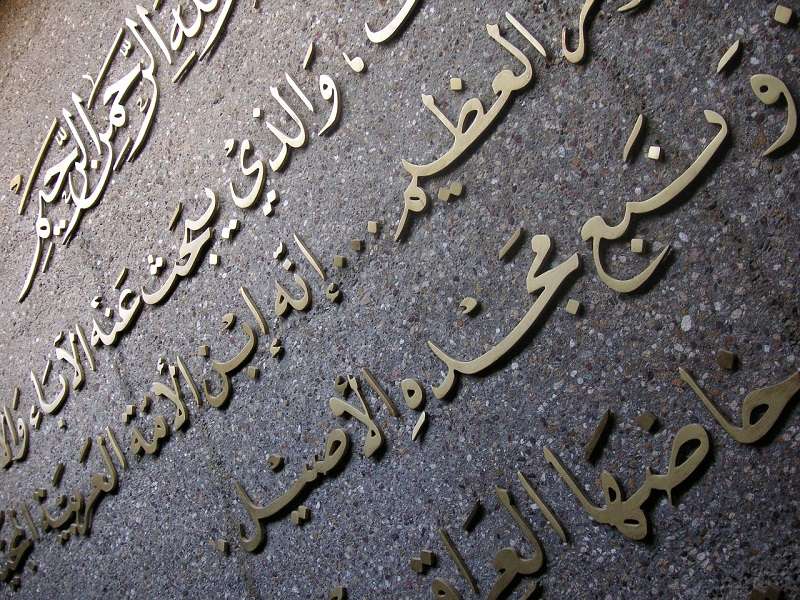 الله الرّحمن الرّحيم
وَالذيْ يبحَث عَنْه الآبَاء
العظيم ... إنّه ابْن الأمّة العَربيّة
وَ نَبع مجْدهِ الأصيْل.
خاضهَا العرَاق